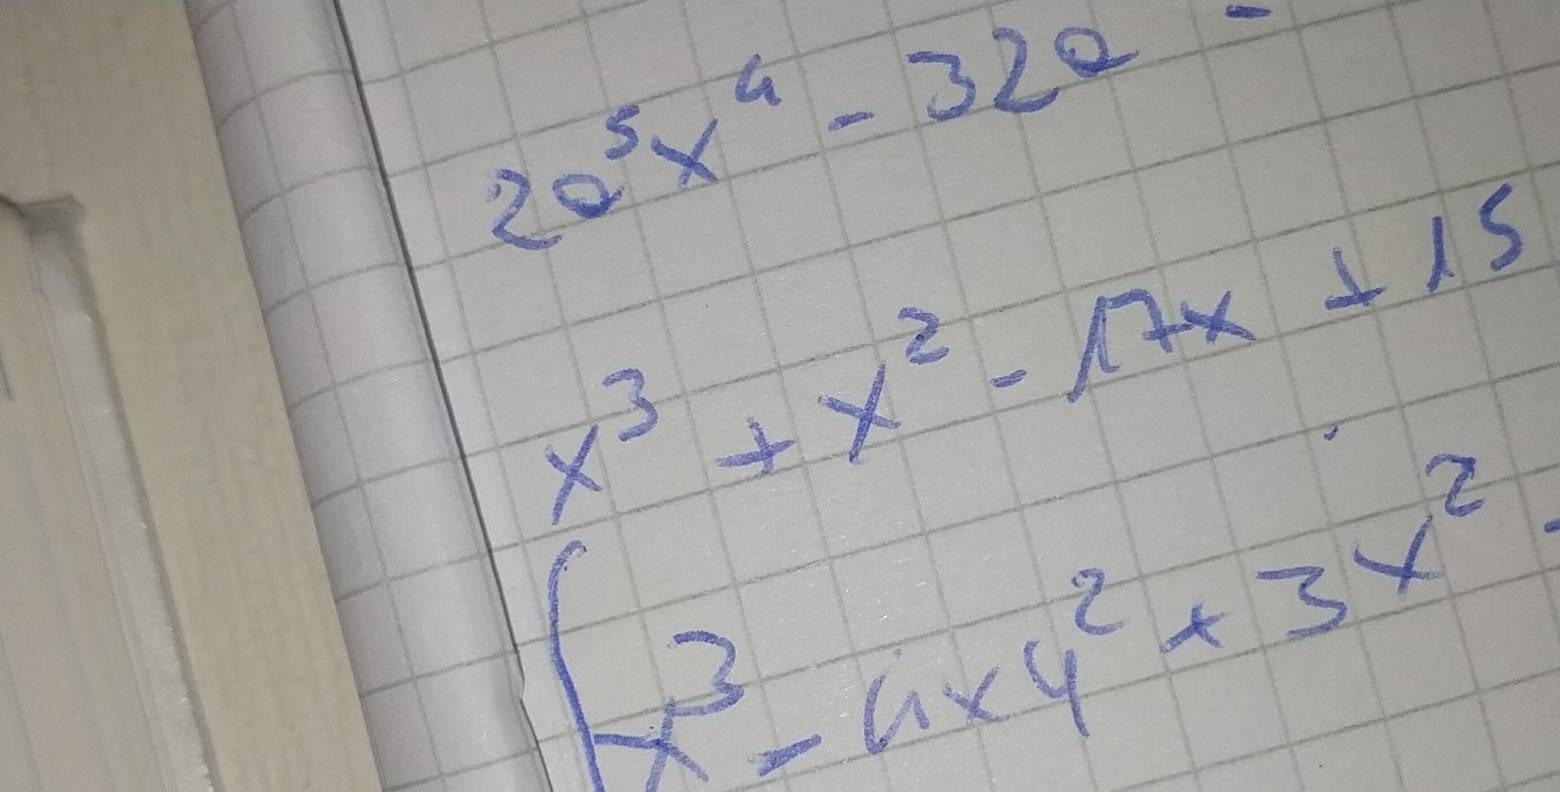 2a⁵x⁴ - 32a -
x³ + x² - 17x + 15
x³ - 4xy² + 3x² -